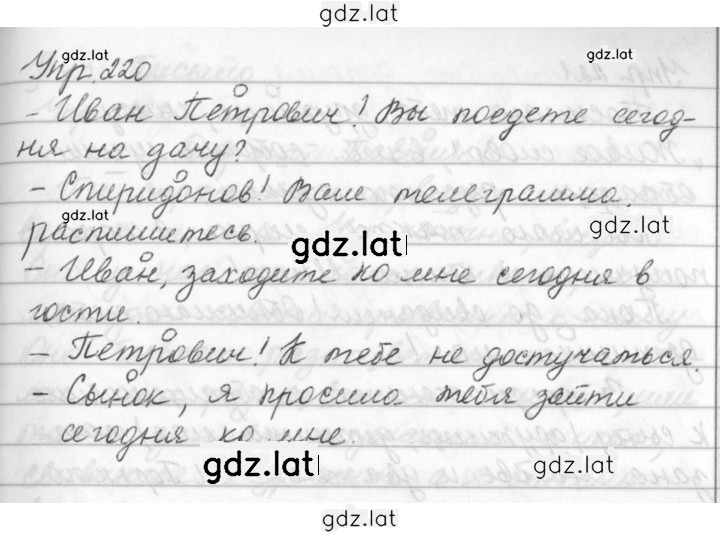 gdz.lat
gdz.lat gdz.lat
Упр. 220
– Иван Петрович! Вы поедете сегод-
ня на дачу?
– Спиридонов! Вам телеграмма,
gdz.lat gdz.lat
распишитесь.
gdz.lat
– Иван, заходите ко мне сегодня в
гости.
– Петрович! К тебе не достучаться.
– Сынок, я просила тебя зайти
сегодня ко мне.
gdz.lat gdz.lat
gdz.lat